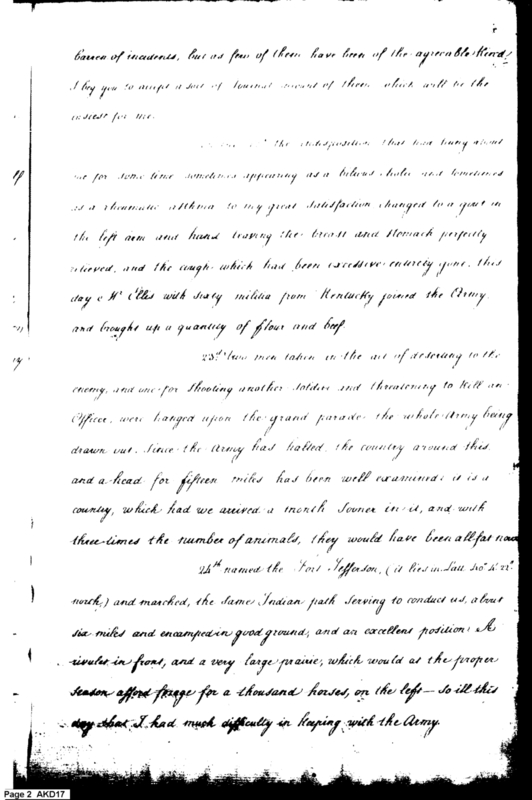 barren of incidents, but as few of them have been of the agreeable kind,
I beg you to accept a sort of Journal account of them, which will be the
easiest for me.
the indisposition that had hung about
me for some time sometimes appearing as a bilious cholic and sometimes
as a rheumatic asthma to my great satisfaction changed to a gout in
the left arm and hand leaving the breast and stomach perfectly
relieved, and the cough which had been excessive entirely gone, this
day Mr. Ellis with sixty militia from Kentucky joined the Army,
and brought up a quantity of flour and beef.
23d two men taken in the act of deserting to the
enemy, and one for shooting another soldier and threatening to kill an
Officer, were hanged upon the grand parade the whole Army being
drawn out. Since the Army has halted, the country around this
and a head for fifteen miles has been well examined: it is a
country, which had we arrived a month sooner in it, and with
three times the number of animals, they would have been all fat now
24th named the Fort Jefferson, (it lies in Latt
north,) and marched, the same Indian path serving to conduct us, about
six miles and encamped in good ground, and an excellent position: A
rivulet in front, and a very large prairie, which would at the proper
season afford forage for a thousand horses, on the left — so ill this
day that I had much difficulty in keeping with the Army.
Page 2 AKD17